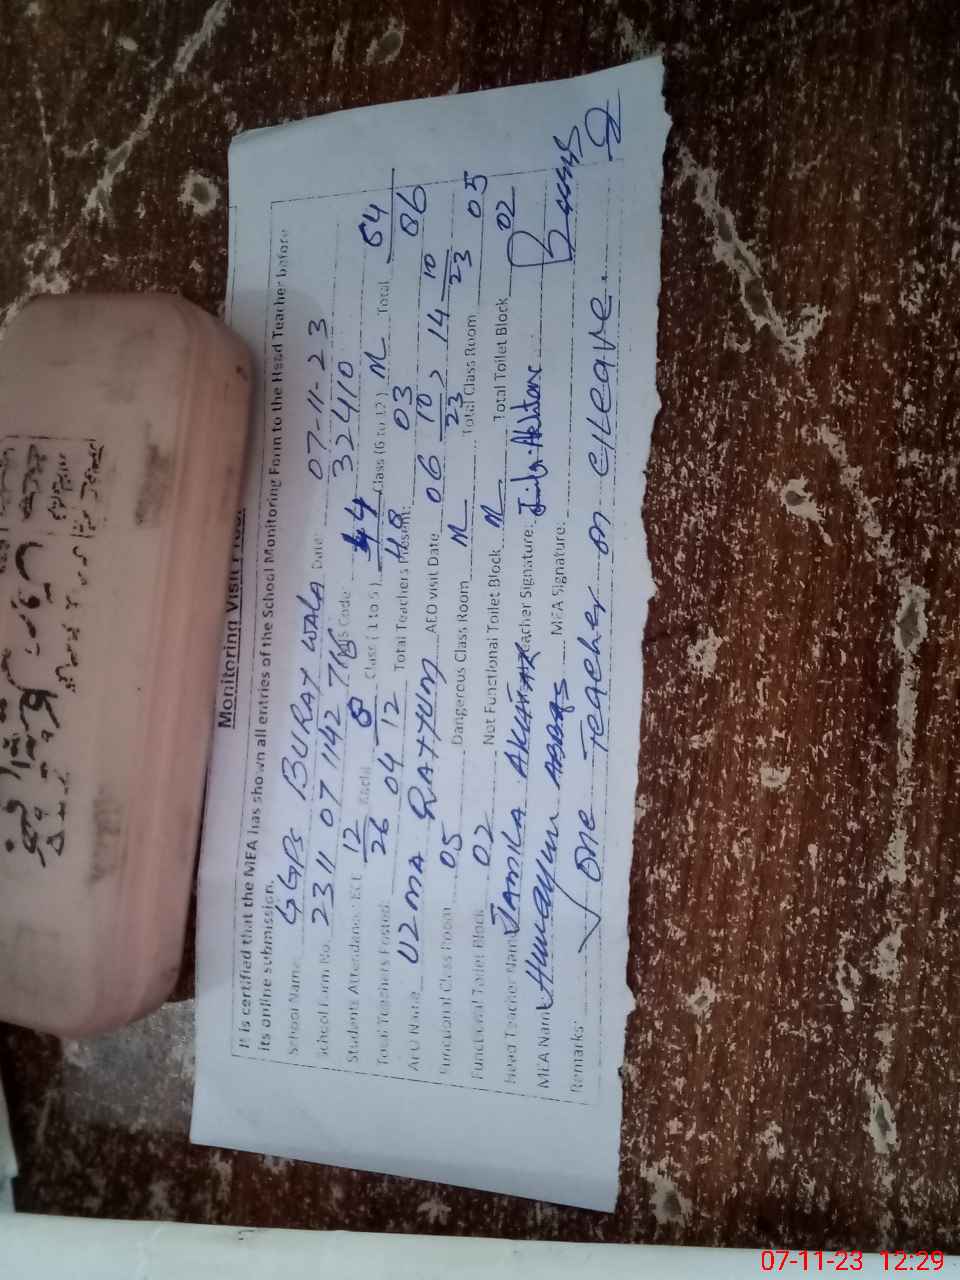 Monitoring Visit
It is certified that the MEA has shown all entries of the School Monitoring Form to the Head Teacher before
its online submission.
School Name: GGPS BURAY WALA Date: 07-11-23
School Form No. 2311 07 1142 716 Code 32410
Students Attendance: ECE 12/26 Kachi 8/12 Class (1 to 5) 44/48 Class (6 to 12) N Total 64/86
Total Teachers Posted 04 Total Teachers Present: 03
AEO Name UZMA AEO visit Date 06 10/23, 14 10/23
Functional Class Room 05 Dangerous Class Room N Total Class Room 05
Functional Toilet Block 02 Not Functional Toilet Block N Total Toilet Block 02
Head Teacher Name JAMILA AKHTAR Teacher Signature:
MEA Name Humayun ABBAS MEA Signature:
Remarks: One Teacher on C/Leave.
07-11-23 12:29